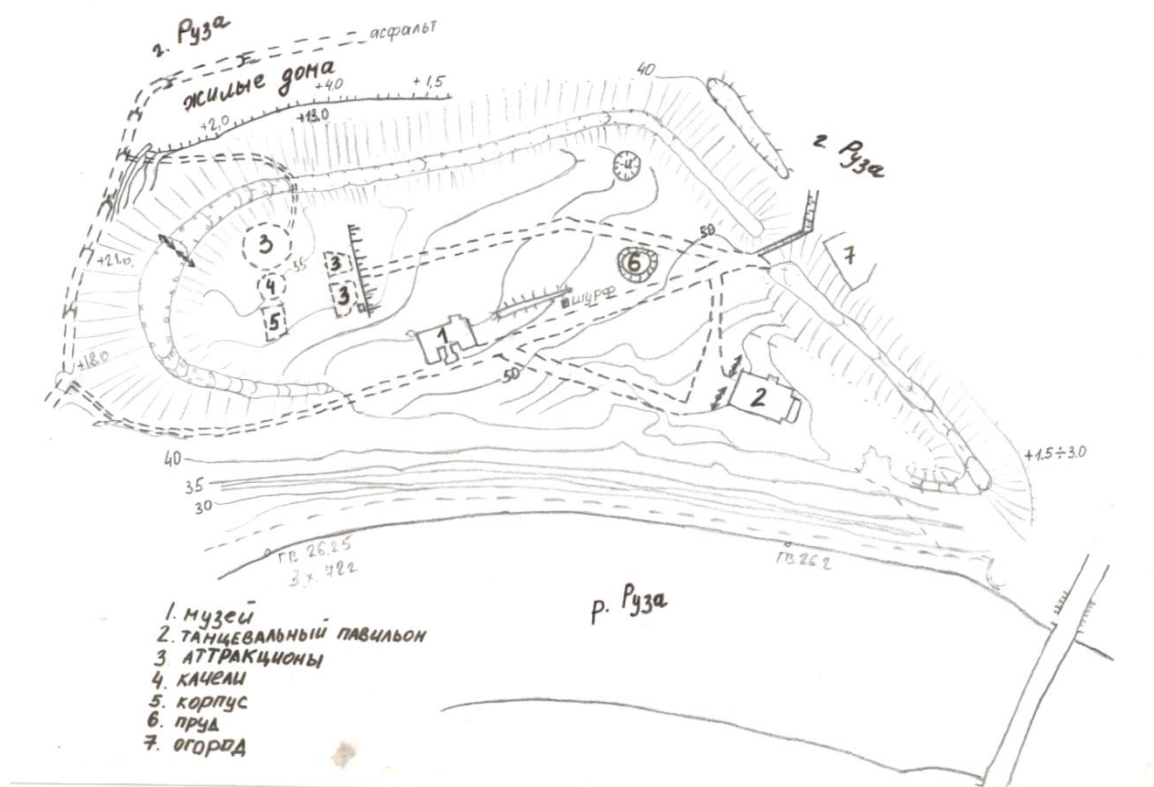 г. Руза
асфальт
жилые дома
+4.0
+1,5
+2,0
+13.0
40
г. Руза
3
35
+21.0
4
3
3
5
50
6
7
шурф
1
50
2
+18.0
40
35
30
+1.5÷3.0
ГВ 26.25
3.X.722
ГВ 26.2
р. Руза
1. музей
2. танцевальный павильон
3. аттракционы
4. качели
5. корпус
6. пруд
7. огород